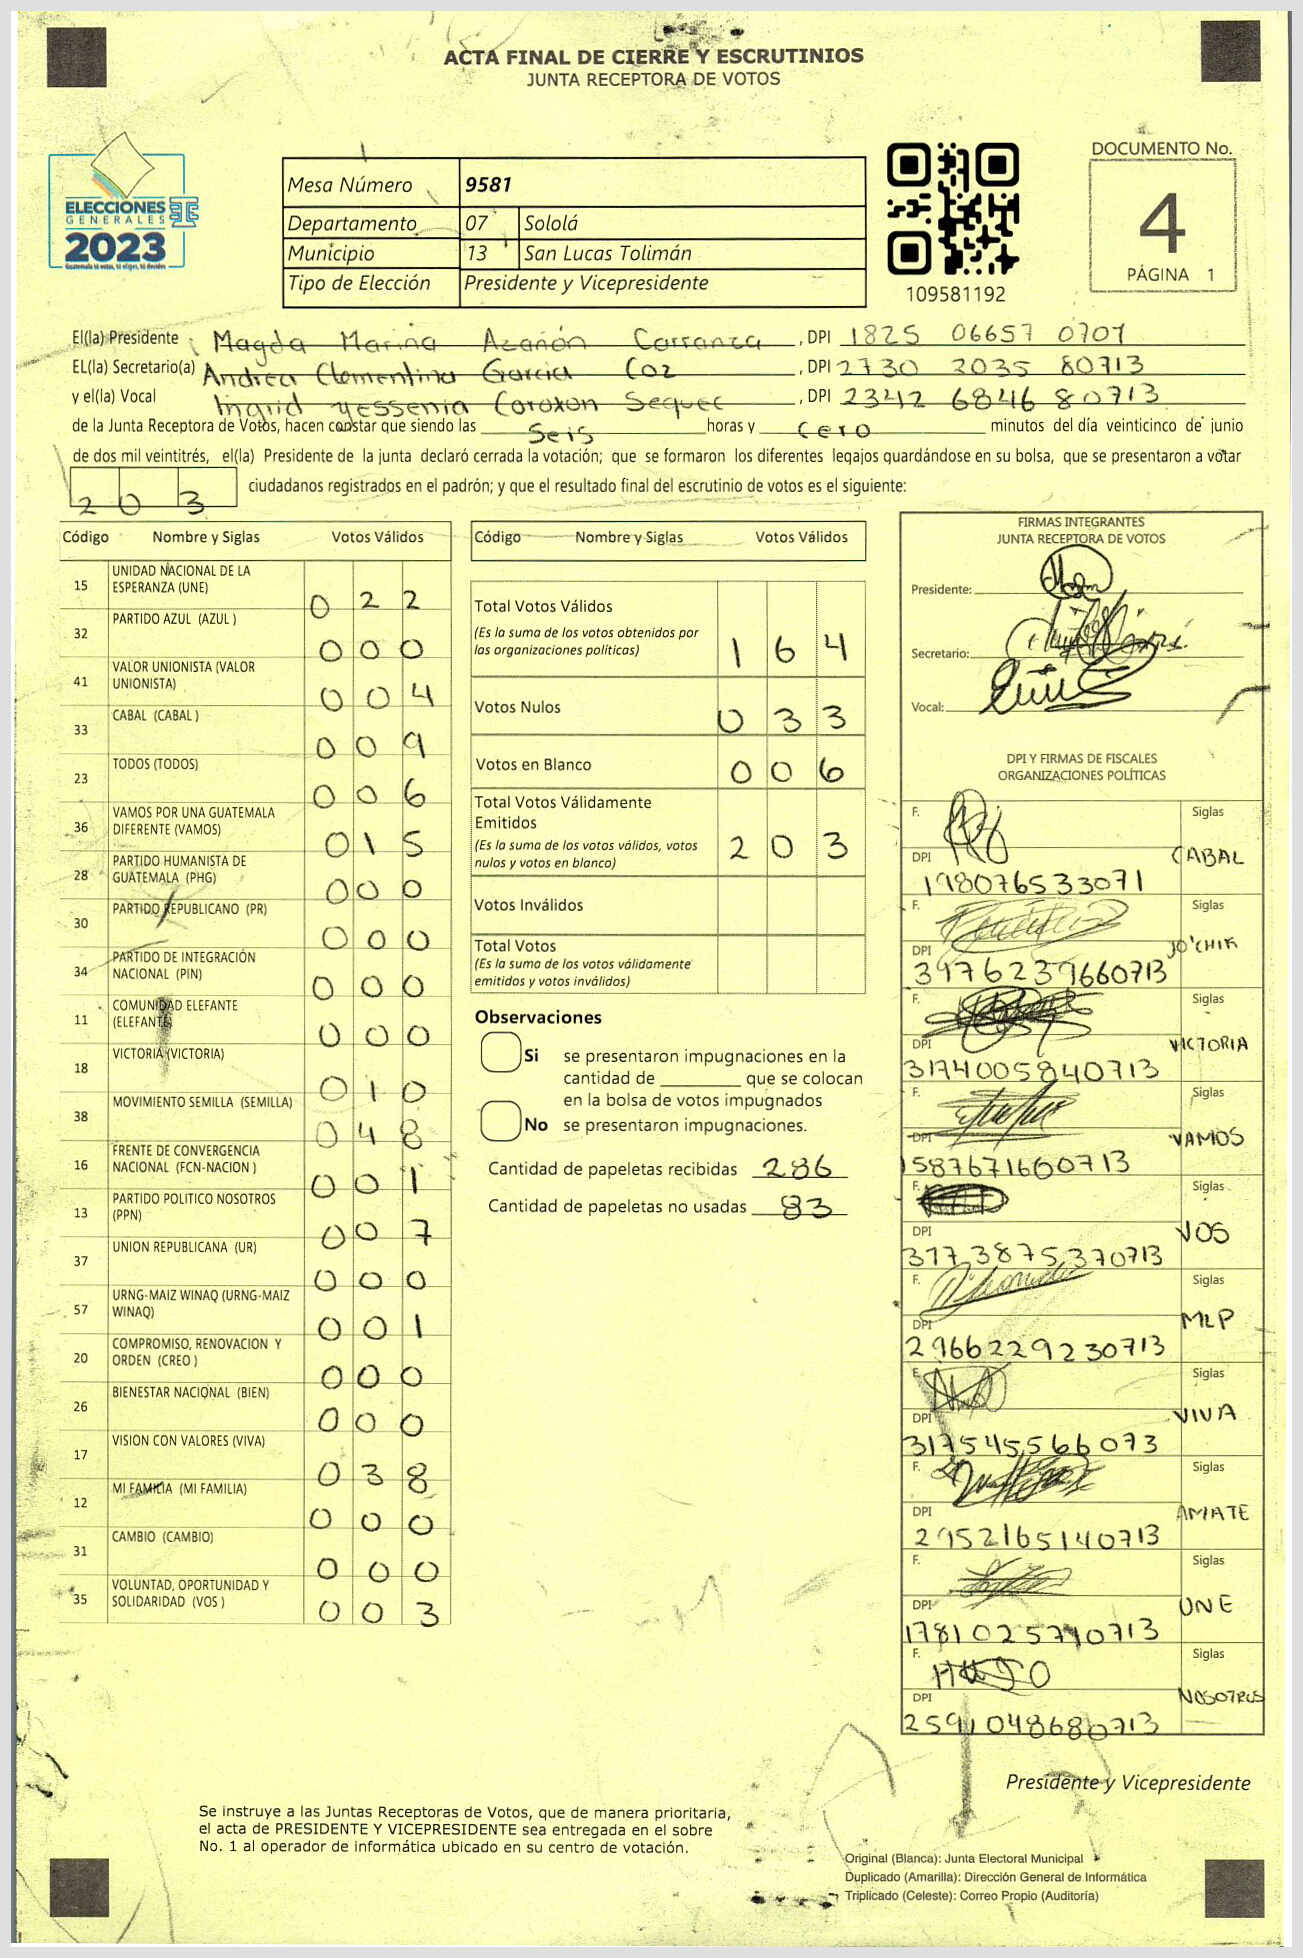 ACTA FINAL DE CIERRE Y ESCRUTINIOS
JUNTA RECEPTORA DE VOTOS
ELECCIONES
GENERALES
2023
Guatemala tú votas, tú eliges, tú decides
Mesa Número 9581
Departamento 07 Sololá
Municipio 13 San Lucas Tolimán
Tipo de Elección Presidente y Vicepresidente
109581192
DOCUMENTO No.
4
PÁGINA 1
El(la) Presidente Magda Marina Azañón Carranza, DPI 1825 06657 0707
EL(la) Secretario(a) Andrea Clementina Garcia Coz, DPI 2730 2035 80713
y el(la) Vocal Ingrid Yessenia Coroxon Sequec, DPI 2342 6846 80713
de la Junta Receptora de Votos, hacen constar que siendo las Seis horas y cero minutos del día veinticinco de junio
de dos mil veintitrés, el(la) Presidente de la junta declaró cerrada la votación; que se formaron los diferentes legajos guardándose en su bolsa, que se presentaron a votar
203 ciudadanos registrados en el padrón; y que el resultado final del escrutinio de votos es el siguiente:
Código Nombre y Siglas Votos Válidos
15 UNIDAD NACIONAL DE LA
ESPERANZA (UNE) 0 2 2
32 PARTIDO AZUL (AZUL ) 0 0 0
41 VALOR UNIONISTA (VALOR
UNIONISTA) 0 0 4
33 CABAL (CABAL ) 0 0 9
23 TODOS (TODOS) 0 0 6
36 VAMOS POR UNA GUATEMALA
DIFERENTE (VAMOS) 0 1 5
28 PARTIDO HUMANISTA DE
GUATEMALA (PHG) 0 0 0
30 PARTIDO REPUBLICANO (PR) 0 0 0
34 PARTIDO DE INTEGRACIÓN
NACIONAL (PIN) 0 0 0
11 COMUNIDAD ELEFANTE
(ELEFANTE) 0 0 0
18 VICTORIA (VICTORIA) 0 1 0
38 MOVIMIENTO SEMILLA (SEMILLA) 0 4 8
16 FRENTE DE CONVERGENCIA
NACIONAL (FCN-NACION ) 0 0 1
13 PARTIDO POLITICO NOSOTROS
(PPN) 0 0 7
37 UNION REPUBLICANA (UR) 0 0 0
57 URNG-MAIZ WINAQ (URNG-MAIZ
WINAQ) 0 0 1
20 COMPROMISO, RENOVACION Y
ORDEN (CREO ) 0 0 0
26 BIENESTAR NACIONAL (BIEN) 0 0 0
17 VISION CON VALORES (VIVA) 0 3 8
12 MI FAMILIA (MI FAMILIA) 0 0 0
31 CAMBIO (CAMBIO) 0 0 0
35 VOLUNTAD, OPORTUNIDAD Y
SOLIDARIDAD (VOS ) 0 0 3
Código Nombre y Siglas Votos Válidos
Total Votos Válidos
(Es la suma de los votos obtenidos por
las organizaciones políticas) 1 6 4
Votos Nulos 0 3 3
Votos en Blanco 0 0 6
Total Votos Válidamente
Emitidos
(Es la suma de los votos válidos, votos
nulos y votos en blanco) 2 0 3
Votos Inválidos
Total Votos
(Es la suma de los votos válidamente
emitidos y votos inválidos)
Observaciones
Si se presentaron impugnaciones en la
cantidad de ________ que se colocan
en la bolsa de votos impugnados
No se presentaron impugnaciones.
Cantidad de papeletas recibidas 286
Cantidad de papeletas no usadas 83
FIRMAS INTEGRANTES
JUNTA RECEPTORA DE VOTOS
Presidente:
Secretario:
Vocal:
DPI Y FIRMAS DE FISCALES
ORGANIZACIONES POLÍTICAS
F. Siglas
DPI CABAL
198076533071
F. Siglas
DPI JO'CHIK
3976239660713
F. Siglas
DPI VICTORIA
3174005840713
F. Siglas
DPI VAMOS
1587671600713
F. Siglas
DPI VOS
3173875370713
F. Siglas
DPI MLP
2966229230713
F. Siglas
DPI VIVA
317545566073
F. Siglas
DPI AMATE
2952165140713
F. Siglas
DPI UNE
1781025790713
F. HUGO Siglas
DPI NOSOTROS
2591048680713
Presidente y Vicepresidente
Se instruye a las Juntas Receptoras de Votos, que de manera prioritaria,
el acta de PRESIDENTE Y VICEPRESIDENTE sea entregada en el sobre
No. 1 al operador de informática ubicado en su centro de votación.
Original (Blanca): Junta Electoral Municipal
Duplicado (Amarilla): Dirección General de Informática
Triplicado (Celeste): Correo Propio (Auditoría)